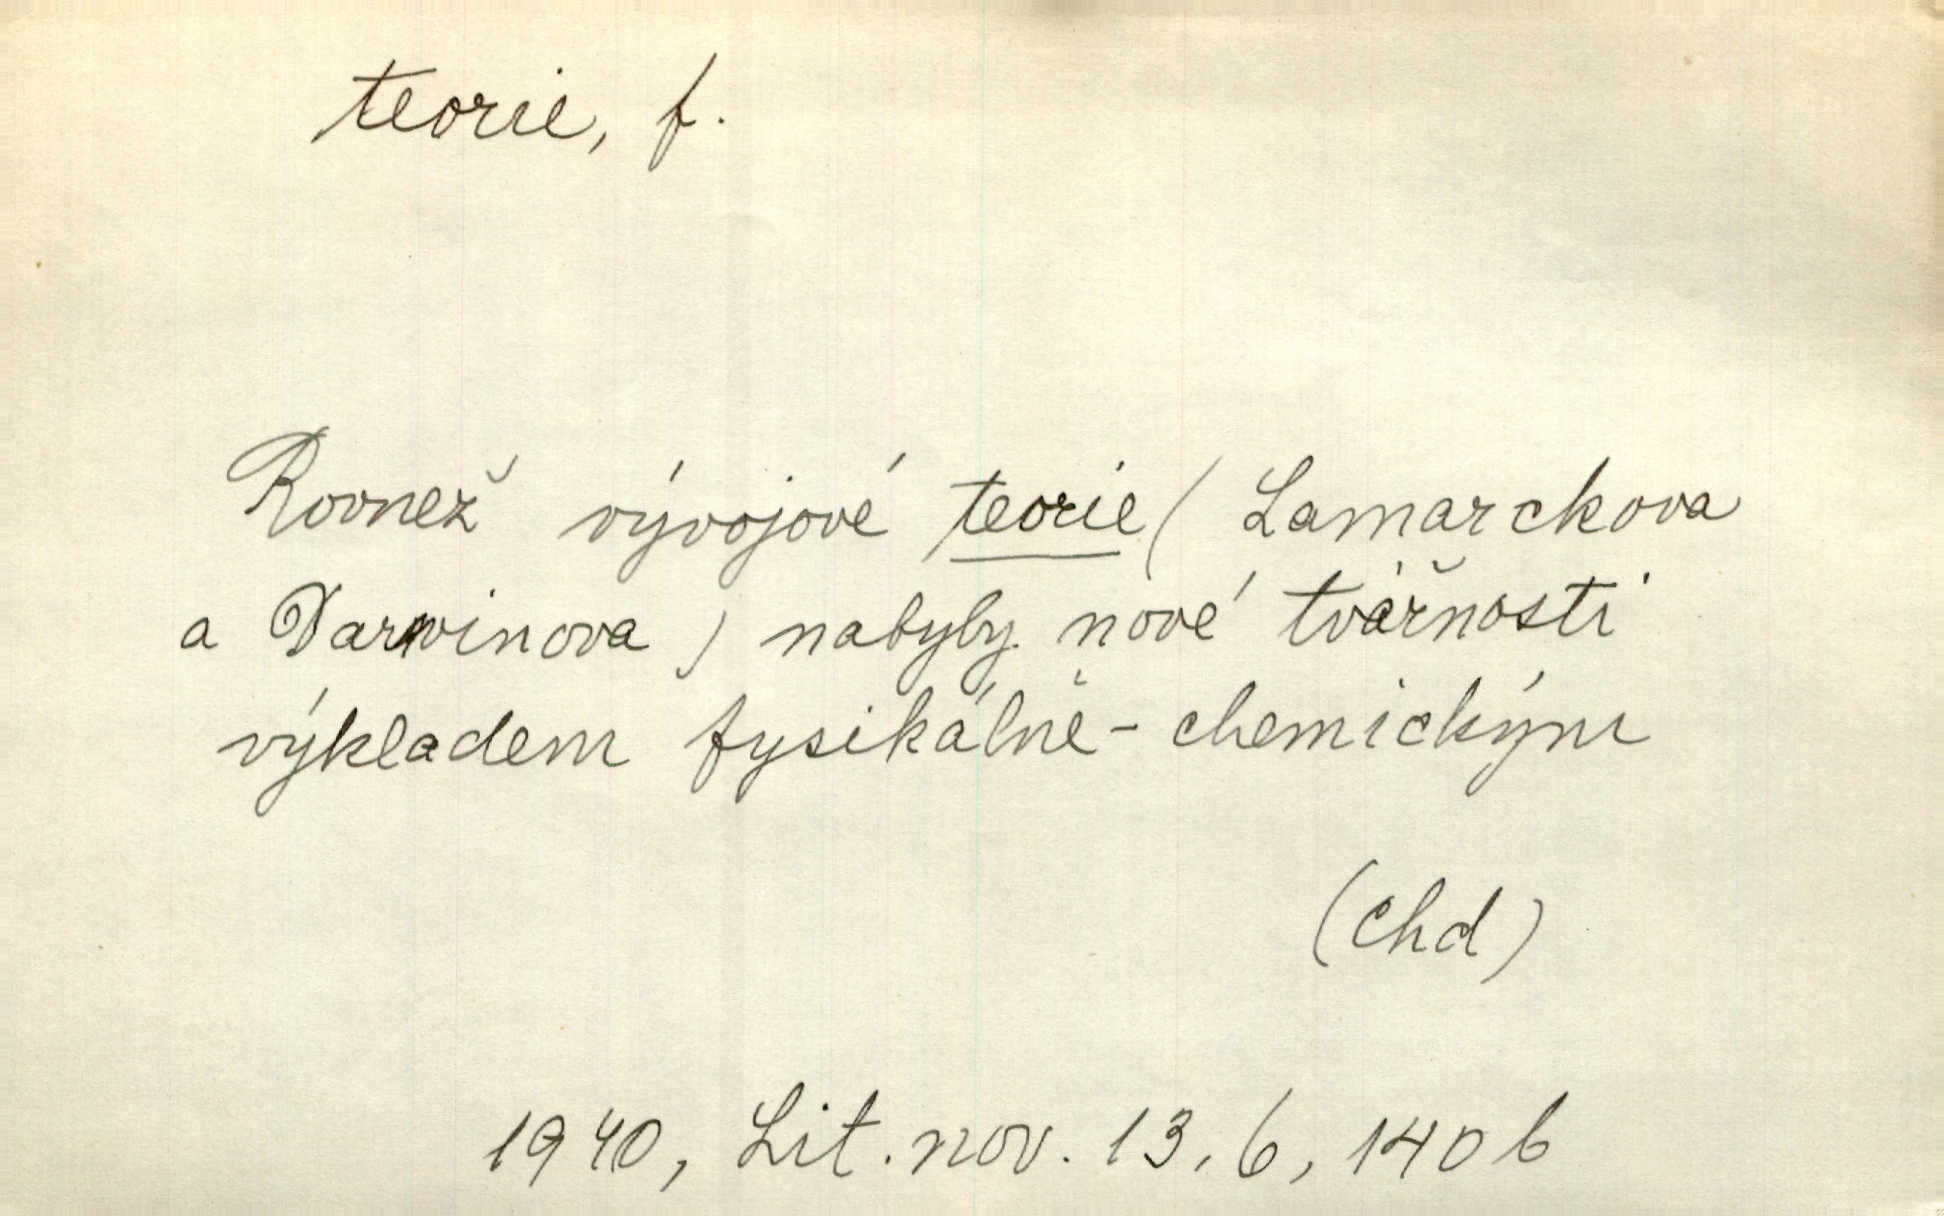 teorie, f.
Rovnež vývojové teorie (Lamarckova
a Darwinova) nabyby nové tvářnosti
výkladem fysikálně-chemickým
(chd)
1940, Lit. nov. 13, 6, 140 b